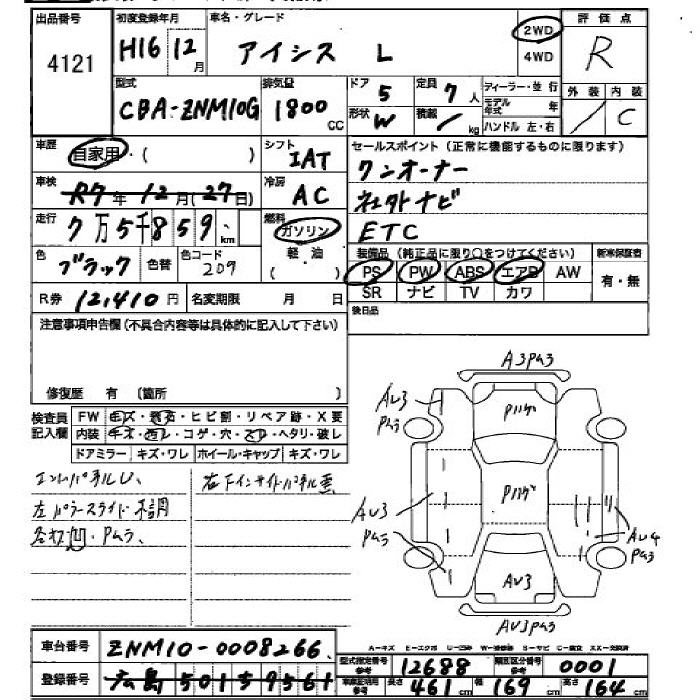 出品番号 初度登録年月 車名・グレード 評価点
4121 H16 12月 アイシス L 2WD 4WD R
型式 排気量 ドア 5 定員 7人 ディーラー・並行 外装 内装
CBA-ZNM10G 1800cc 形状 W 積載 / kg モデル年式 年 / C
ハンドル 左・右
車歴 自家用・( ) シフト IAT セールスポイント(正常に機能するものに限ります)
車検 R7年12月(27日) 冷房 AC ワンオーナー
社外ナビ
走行 7万5千859km 燃料 ガソリン 軽油 ( ) ETC
色 ブラック 色替 色コード 209 装備品(純正品に限り○をつけてください) 新車保証書
PS PW ABS エアB AW 有・無
R券 12,410円 名変期限 月 日 SR ナビ TV カワ
注意事項申告欄(不具合内容等は具体的に記入して下さい) 後日品
修復歴 有 〔箇所 〕
検査員記入欄 FW キズ・飛石・ヒビ割・リペア跡・X要
内装 コゲ・穴・ヘタリ・破レ
ドアミラー キズ・ワレ ホイール・キャップ キズ・ワレ
左パワースライド不調
A3 Pa3
AU3
Pa3
AU3
Pa5
AU4
Pa3
AU3
AU3 Pa3
A-キズ E-エクボ U-凹み W-補修跡 S-サビ C-腐食 XX-交換済
車台番号 ZNM10-0008266
登録番号 広島 501 5 9561
型式指定番号 参考 12688 類別区分番号 参考 0001
車庫証明用 参考 長さ 461cm 幅 169cm 高さ 164cm